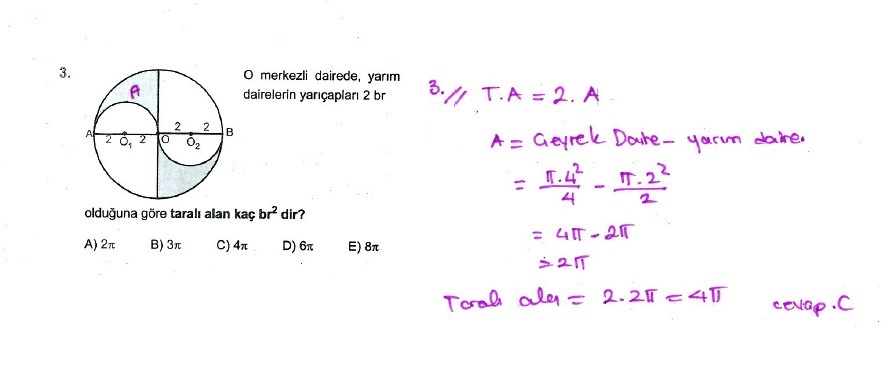 3.
O merkezli dairede, yarım
dairelerin yarıçapları 2 br
A
A 2 O₁ 2 O 2 O₂ 2 B
olduğuna göre taralı alan kaç br² dir?
A) 2π B) 3π C) 4π D) 6π E) 8π
3.// T.A = 2.A
A = Çeyrek Daire - yarım daire.
= π.4²/4 - π.2²/2
= 4π - 2π
= 2π
Taralı alan = 2.2π = 4π cevap.C